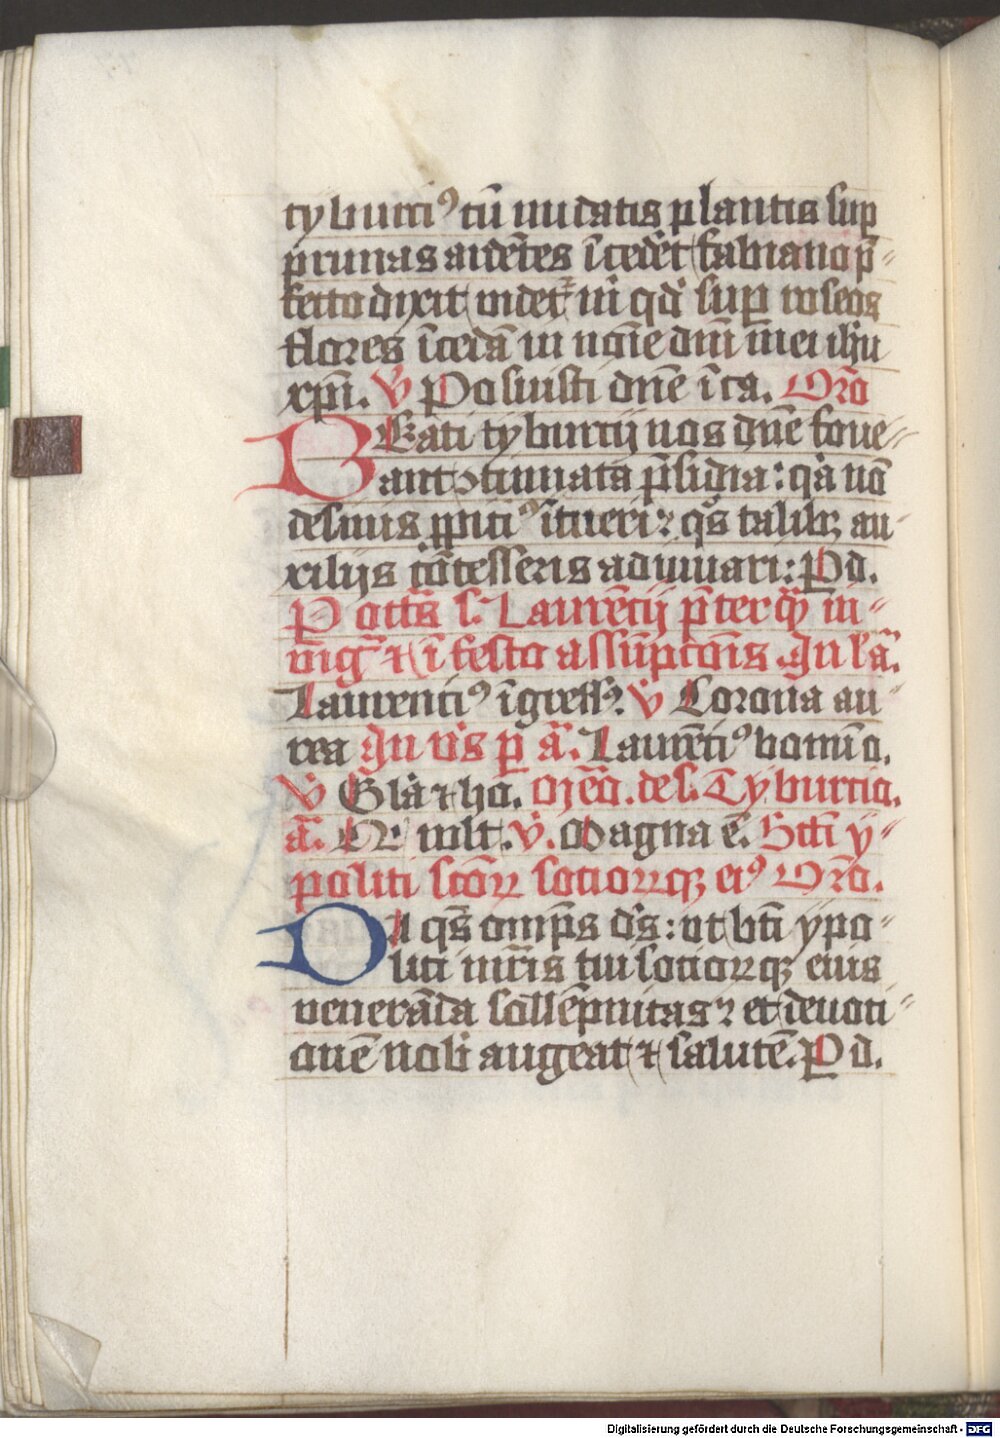 tyburci⁹ cū nudatis plantis sup
prunas ardētes īcedēt fabiano p̄-
fecto dixit videt᷑ m̄ qd' sup roseos
flores īcedā in noīe dnī mei ihu
xpī. v̓ Posuisti dnē ī ca. Oro
BEati tyburcij nos dnē foue-
ant ↄtinuata p̄sidia: qa nō
desinis ppiti⁹ ītueri: qs talibꝫ au-
xilijs cōcesseris adiuuari: P d.
P octās s. Laurēcij p̄terqͫ in
vigᵃ ⁊ ī festo assūpcōis. In lā.
Laurenci⁹ īgress᷒. v̓ Corona au-
rea In vīs p ā. Laurēci⁹ bonū o.
v̓ Glā ⁊ ho. Mēo. de s. Tyburcio.
ā. Qͥ vult. v̓. Magna ē. Scti y-
politi scōꝝ socioꝝqꝫ ei⁹ Oro.
DA qs omps ds: ut bti ypo-
liti mris tui socioꝝqꝫ eius
venerāda sollēpnitas: et deuoti-
onē nob augeat ⁊ salutē. P d.
Digitalisierung gefördert durch die Deutsche Forschungsgemeinschaft - DFG